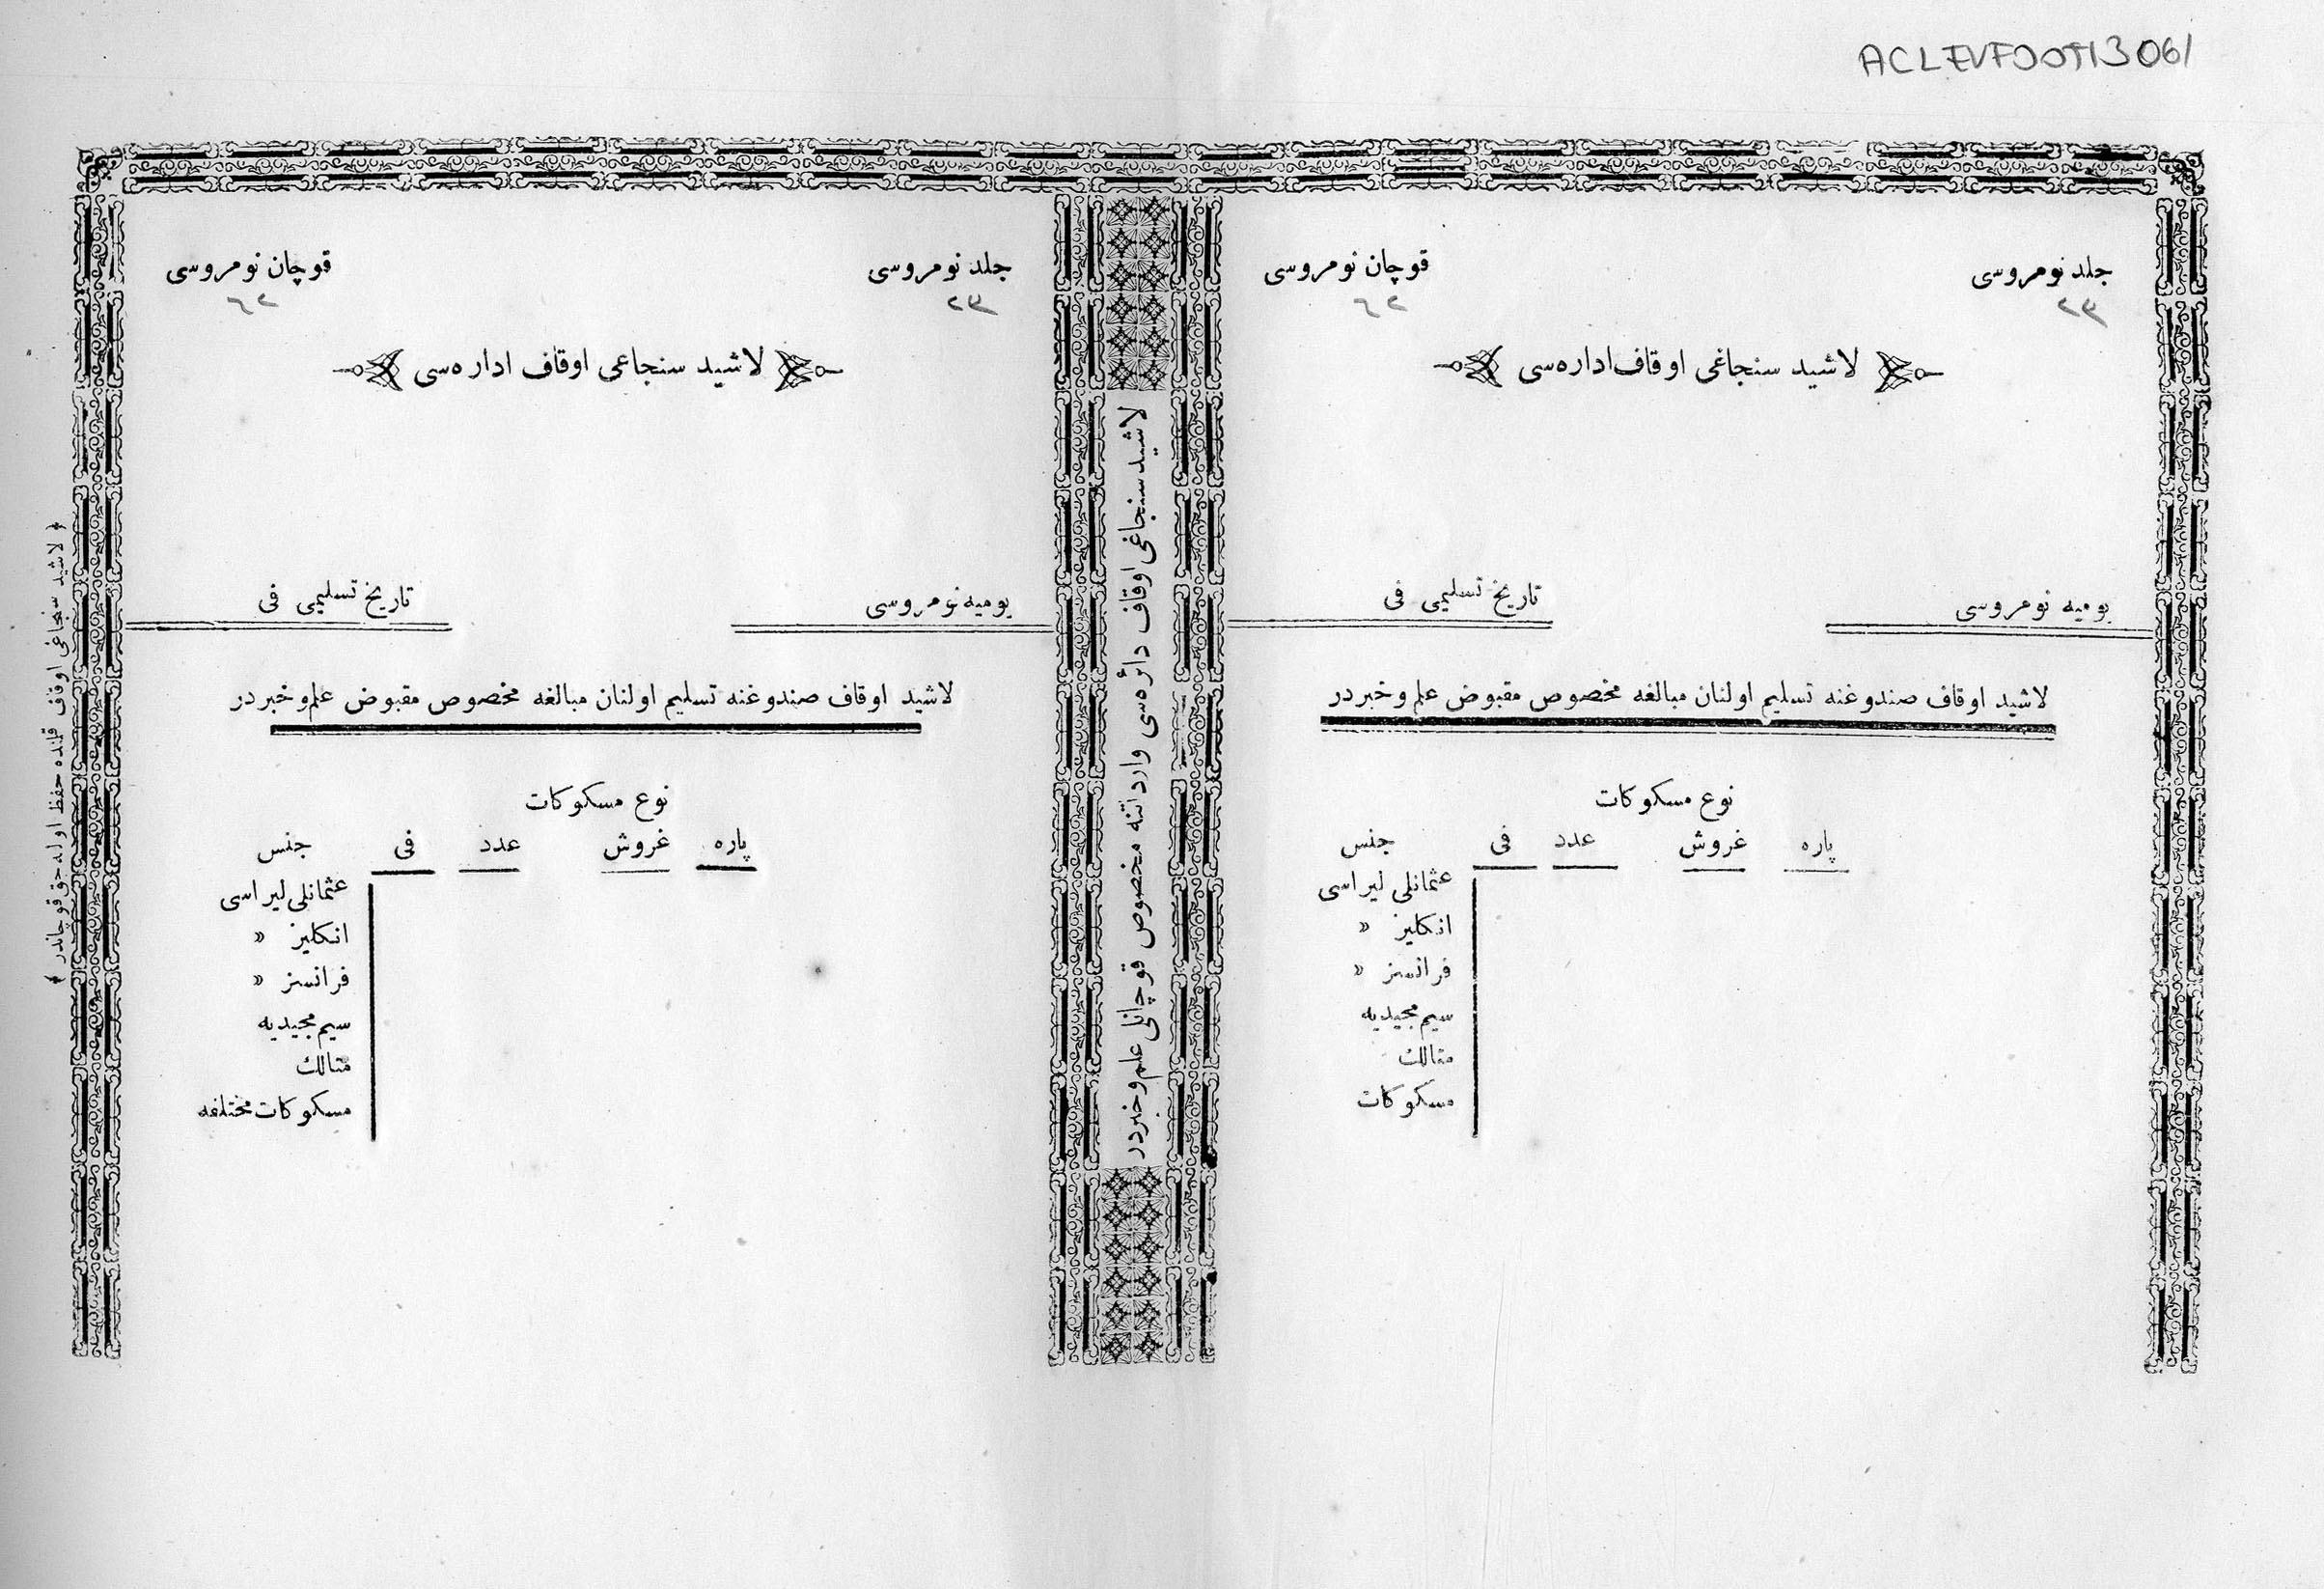 ACLEVFOOT13061
جلد نومروسی
٢٣
قوچان نومروسی
٦٢
لاشید سنجاغی اوقاف اداره‌سی
یومیه نومروسی
تاریخ تسلیمی فی
لاشید اوقاف صندوغنه تسلیم اولنان مبالغه مخصوص مقبوض علم و خبردر
نوع مسكوكات
جنس فی عدد غروش پاره
عثمانلی لیراسی
انكلیز »
فرانسز »
سیم مجیدیه
متالك
مسكوكات
لاشید سنجاغی اوقاف دائره‌سی وارداتنه مخصوص قوچانلی علم و خبردر
جلد نومروسی
٢٣
قوچان نومروسی
٦٢
لاشید سنجاغی اوقاف اداره‌سی
یومیه نومروسی
تاریخ تسلیمی فی
لاشید اوقاف صندوغنه تسلیم اولنان مبالغه مخصوص مقبوض علم و خبردر
نوع مسكوكات
جنس فی عدد غروش پاره
عثمانلی لیراسی
انكلیز »
فرانسز »
سیم مجیدیه
متالك
مسكوكات مختلفه
لاشید سنجاغی اوقاف قلمنده حفظ اوله‌جق قوچاندر